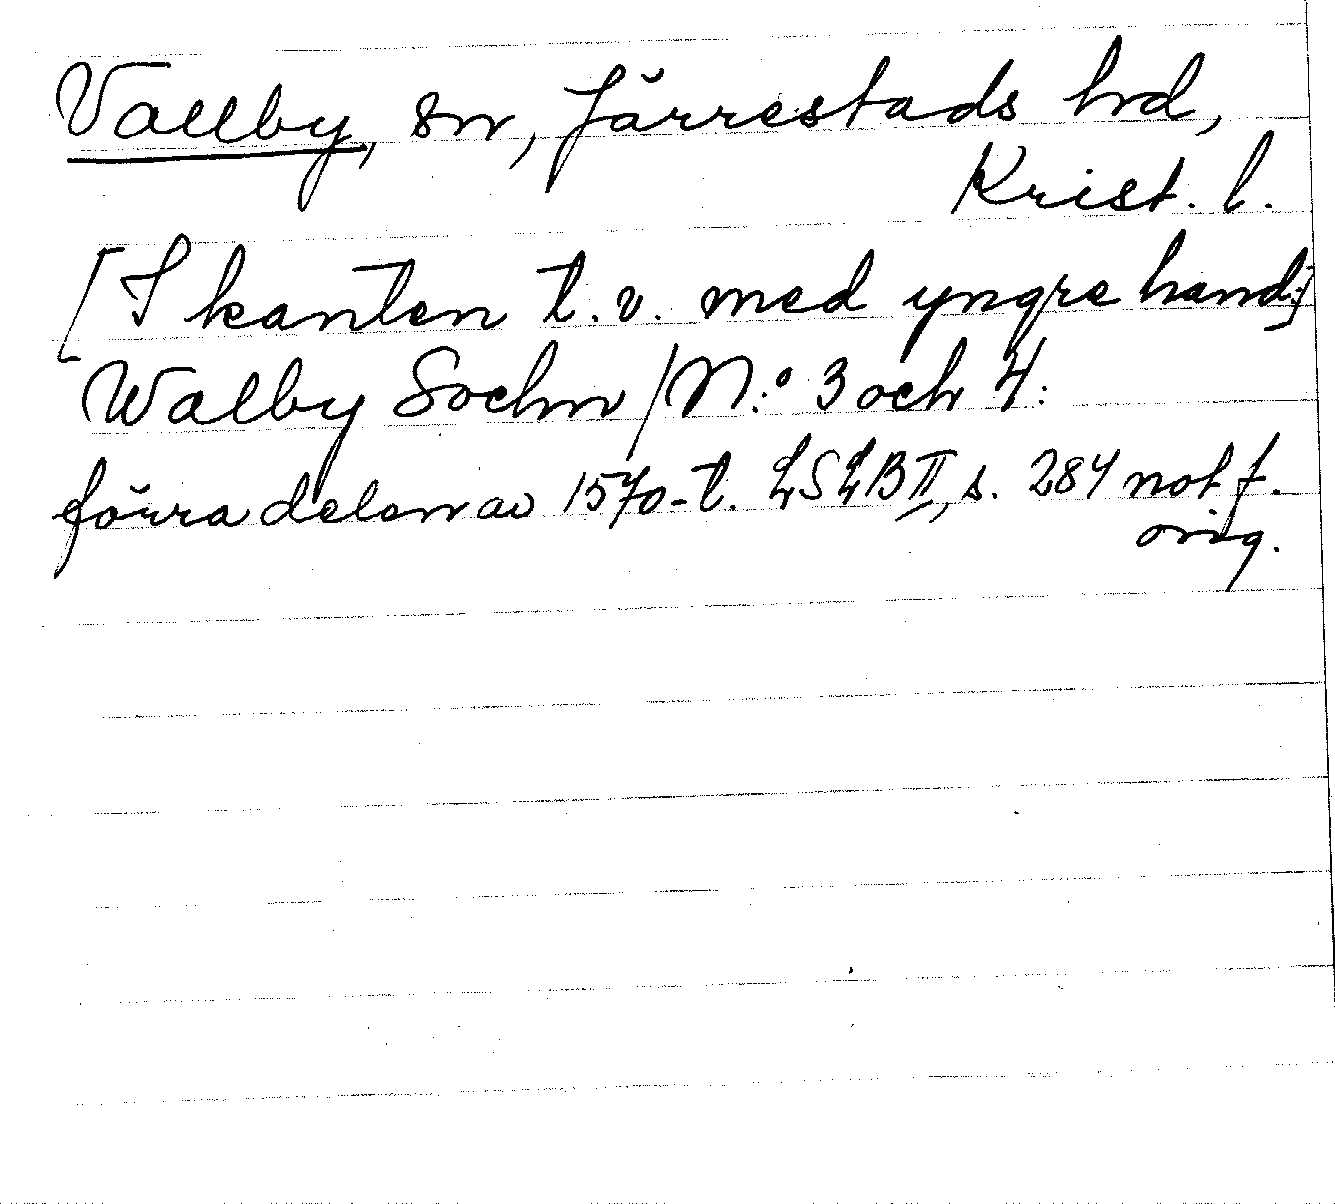 Vallby, sn, Järrestads hrd,
Krist. l.
[I kanten t.v. med yngre hand:]
Walby Sochn / N:o 3 och 4:
förra delen av 1570-t. LSLB II, s. 284 not f.
orig.